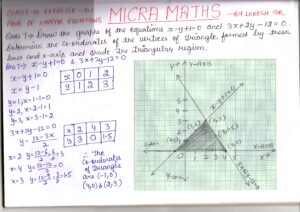 CLASS-10 EXERCISE-3.
MICRA MATHS
PAIR OF LINEAR EQUATIONS
BY LOKESH SIR
Que 7→ Draw the graphs of the equations x-y+1=0 and 3x+2y-12=0.
Determine the co-ordinates of the vertices of triangle formed by these
lines and x-axis and shade the triangular region.
Ans7→ x-y+1=0 & 3x+2y-12=0
x-y+1=0
x=y-1
x 0 1 2
y 1 2 3
y=1, x=1-1=0
y=2, x=2-1=1
y=3, x=3-1=2
3x+2y-12=0
y=12-3x/2
x 2 4 3
y 3 0 1.5
x=2 y=12-6/2=6/2=3
x=4 y=12-12/2=0
x=3 y=12-9/2=3/2=1.5
∴ The
co-ordinates
of triangle
are (-1,0)
(4,0) & (2,3)
Y-AXIS
x-y+1=0
(2,3)
(1,2)
(0,1)
(3,1.5)
(4,0)
X-AXIS
3x+2y-12=0